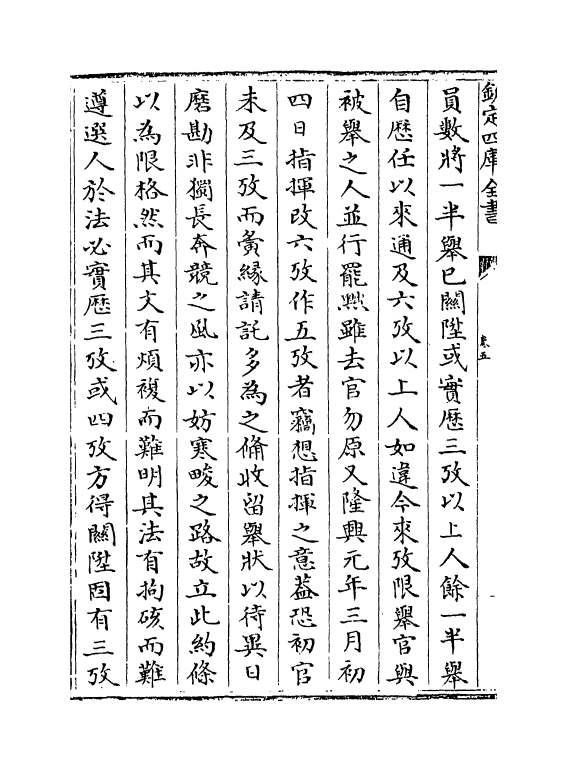 欽定四庫全書
卷五
員數將一半舉已關陞或實歷三攷以上人餘一半舉
自歷任以來通及六攷以上人如違今來攷限舉官與
被舉之人並行罷黜雖去官勿原又隆興元年三月初
四日指揮改六攷作五攷者竊想指揮之意葢恐初官
未及三攷而夤縁請託多為之俻收留舉狀以待異日
磨勘非獨長奔競之風亦以妨寒畯之路故立此約條
以為限格然而其文有煩複而難明其法有拘礙而難
遵選人於法必實歷三攷或四攷方得關陞固有三攷